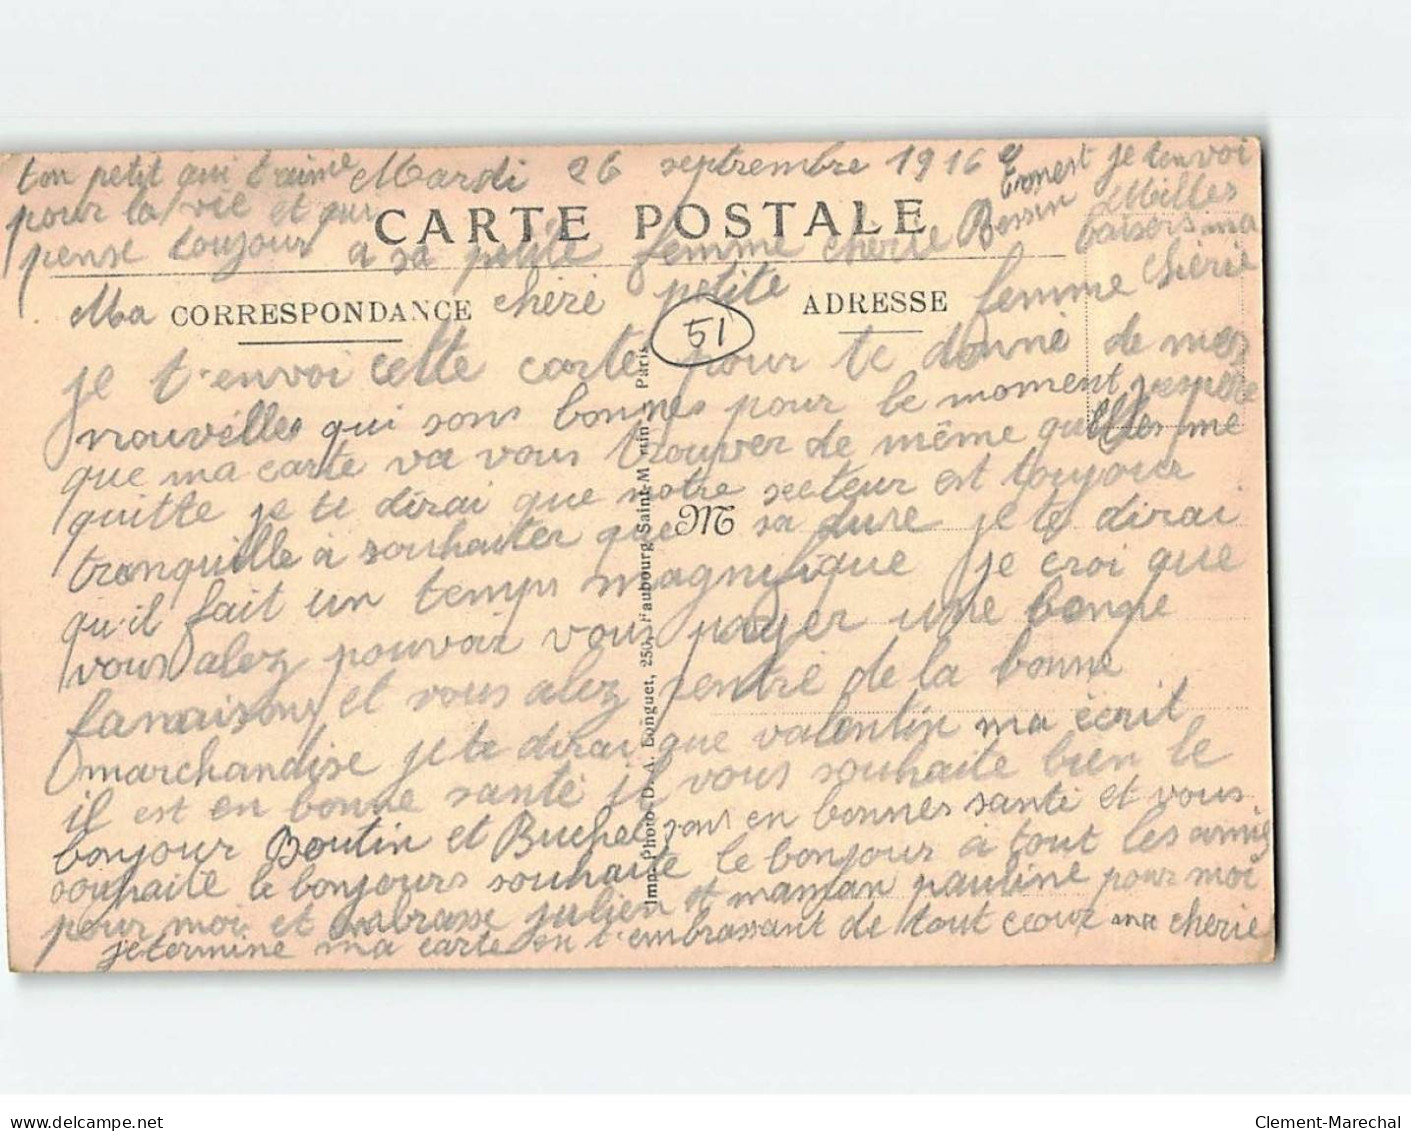 ton petit qui t'aime Mardi 26 septrembre 1916
pour la vie et qui
pense toujour a sa petite femme cherie
Ernest je t'envoi
Bessin Milles
baisers ma
cherie
CARTE POSTALE
CORRESPONDANCE
ADRESSE
Ma cheré petite femme
51
je t'envoi cette carte pour te donné de mes
nouvelles qui sons bonnes pour le moment j'espére
que ma carte va vous trouver de même quelles me
quitte je te dirai que notre secteur est toujour
tranquille a souhaiter que sa dure je te dirai
M
qu'il fait un temps magnifique je croi que
vous alez pouvoir vous payer une bonne
fanaison et vous alez rentré de la bonne
marchandise je te dirai que valentin ma écrit
il est en bonne santé il vous souhaite bien le
bonjour Boutin et Buchel sons en bonnes santé et vous
souhaite le bonjours souhaite le bonjour a tout les amis
pour moi et embrasse julien et maman pauline pour moi
je termine ma carte en t'embrassant de tout ceour ma cherie
Imp. Photo D. A. Longuet, 250, Faubourg Saint-Martin Paris
delcampe.net
Clement-Marechal